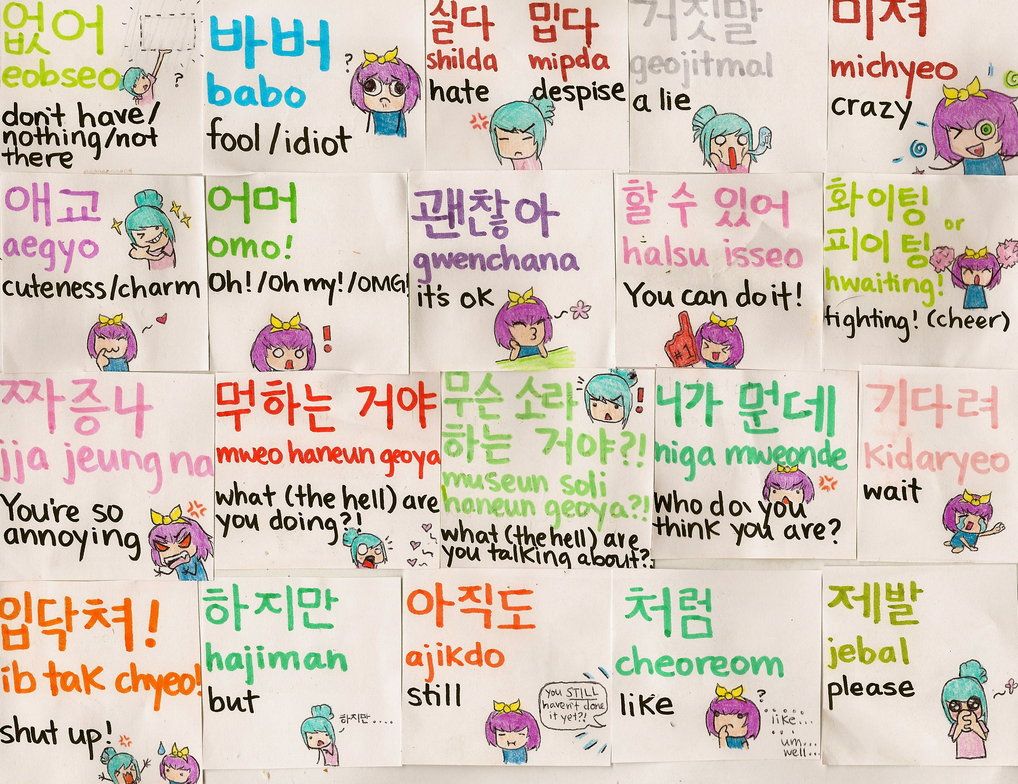 없어
eobseo
?
don't have/
nothing/not
there
바버
babo
?
fool/idiot
싫다 밉다
shilda mipda
hate despise
거짓말
geojitmal
a lie
미쳐
michyeo
crazy
애교
aegyo
cuteness/charm
어머
omo!
Oh!/Oh my!/OMG!
!
괜찮아
gwenchana
it's ok
할 수 있어
halsu isseo
You can do it!
#1
화이팅
or
피이팅
hwaiting!
fighting! (cheer)
짜증나
jja jeung na
You're so
annoying
뭐하는 거야
mweo haneun geoya
what (the hell) are
you doing?!
무슨 소라
하는 거야?!
museun soli
haneun geoya?!
!
what (the hell) are
you talking about?!
니가 뭔데
niga mweonde
Who do you
think you are?
기다려
kidaryeo
wait
입닥쳐!
ib tak chyeo!
shut up!
하지만
hajiman
but
하지만....
아직도
ajikdo
still
you STILL
haven't done
it yet?!
처럼
cheoreom
like
?
like...
um...
well...
제발
jebal
please